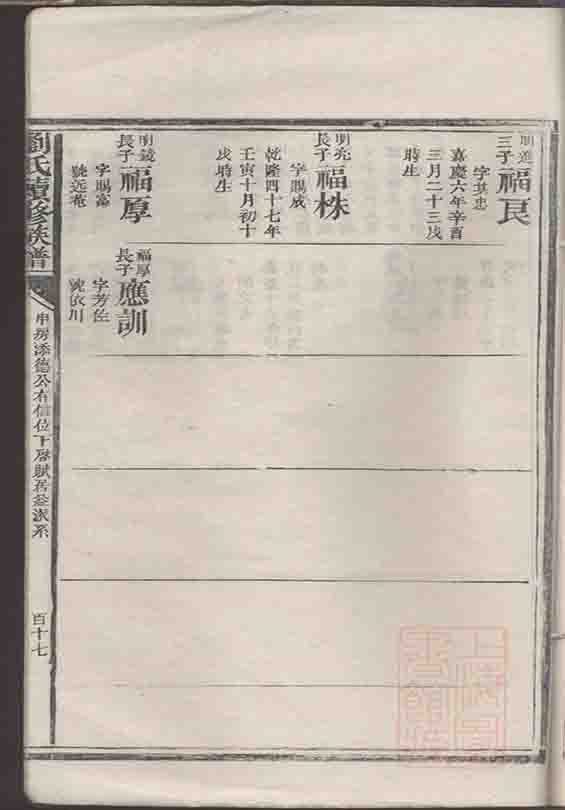 明進
三子
福艮
字其忠
嘉慶六年辛酉
三月二十三戌
時生
明亮
長子
福株
字賜威
乾隆四十七年
壬寅十月初十
戌時生
明鏡
長子
福厚
字賜富
號远菴
福厚
長子
應訓
字芳任
號依川
劉氏續修族譜
申房添德公有信位下
百十七